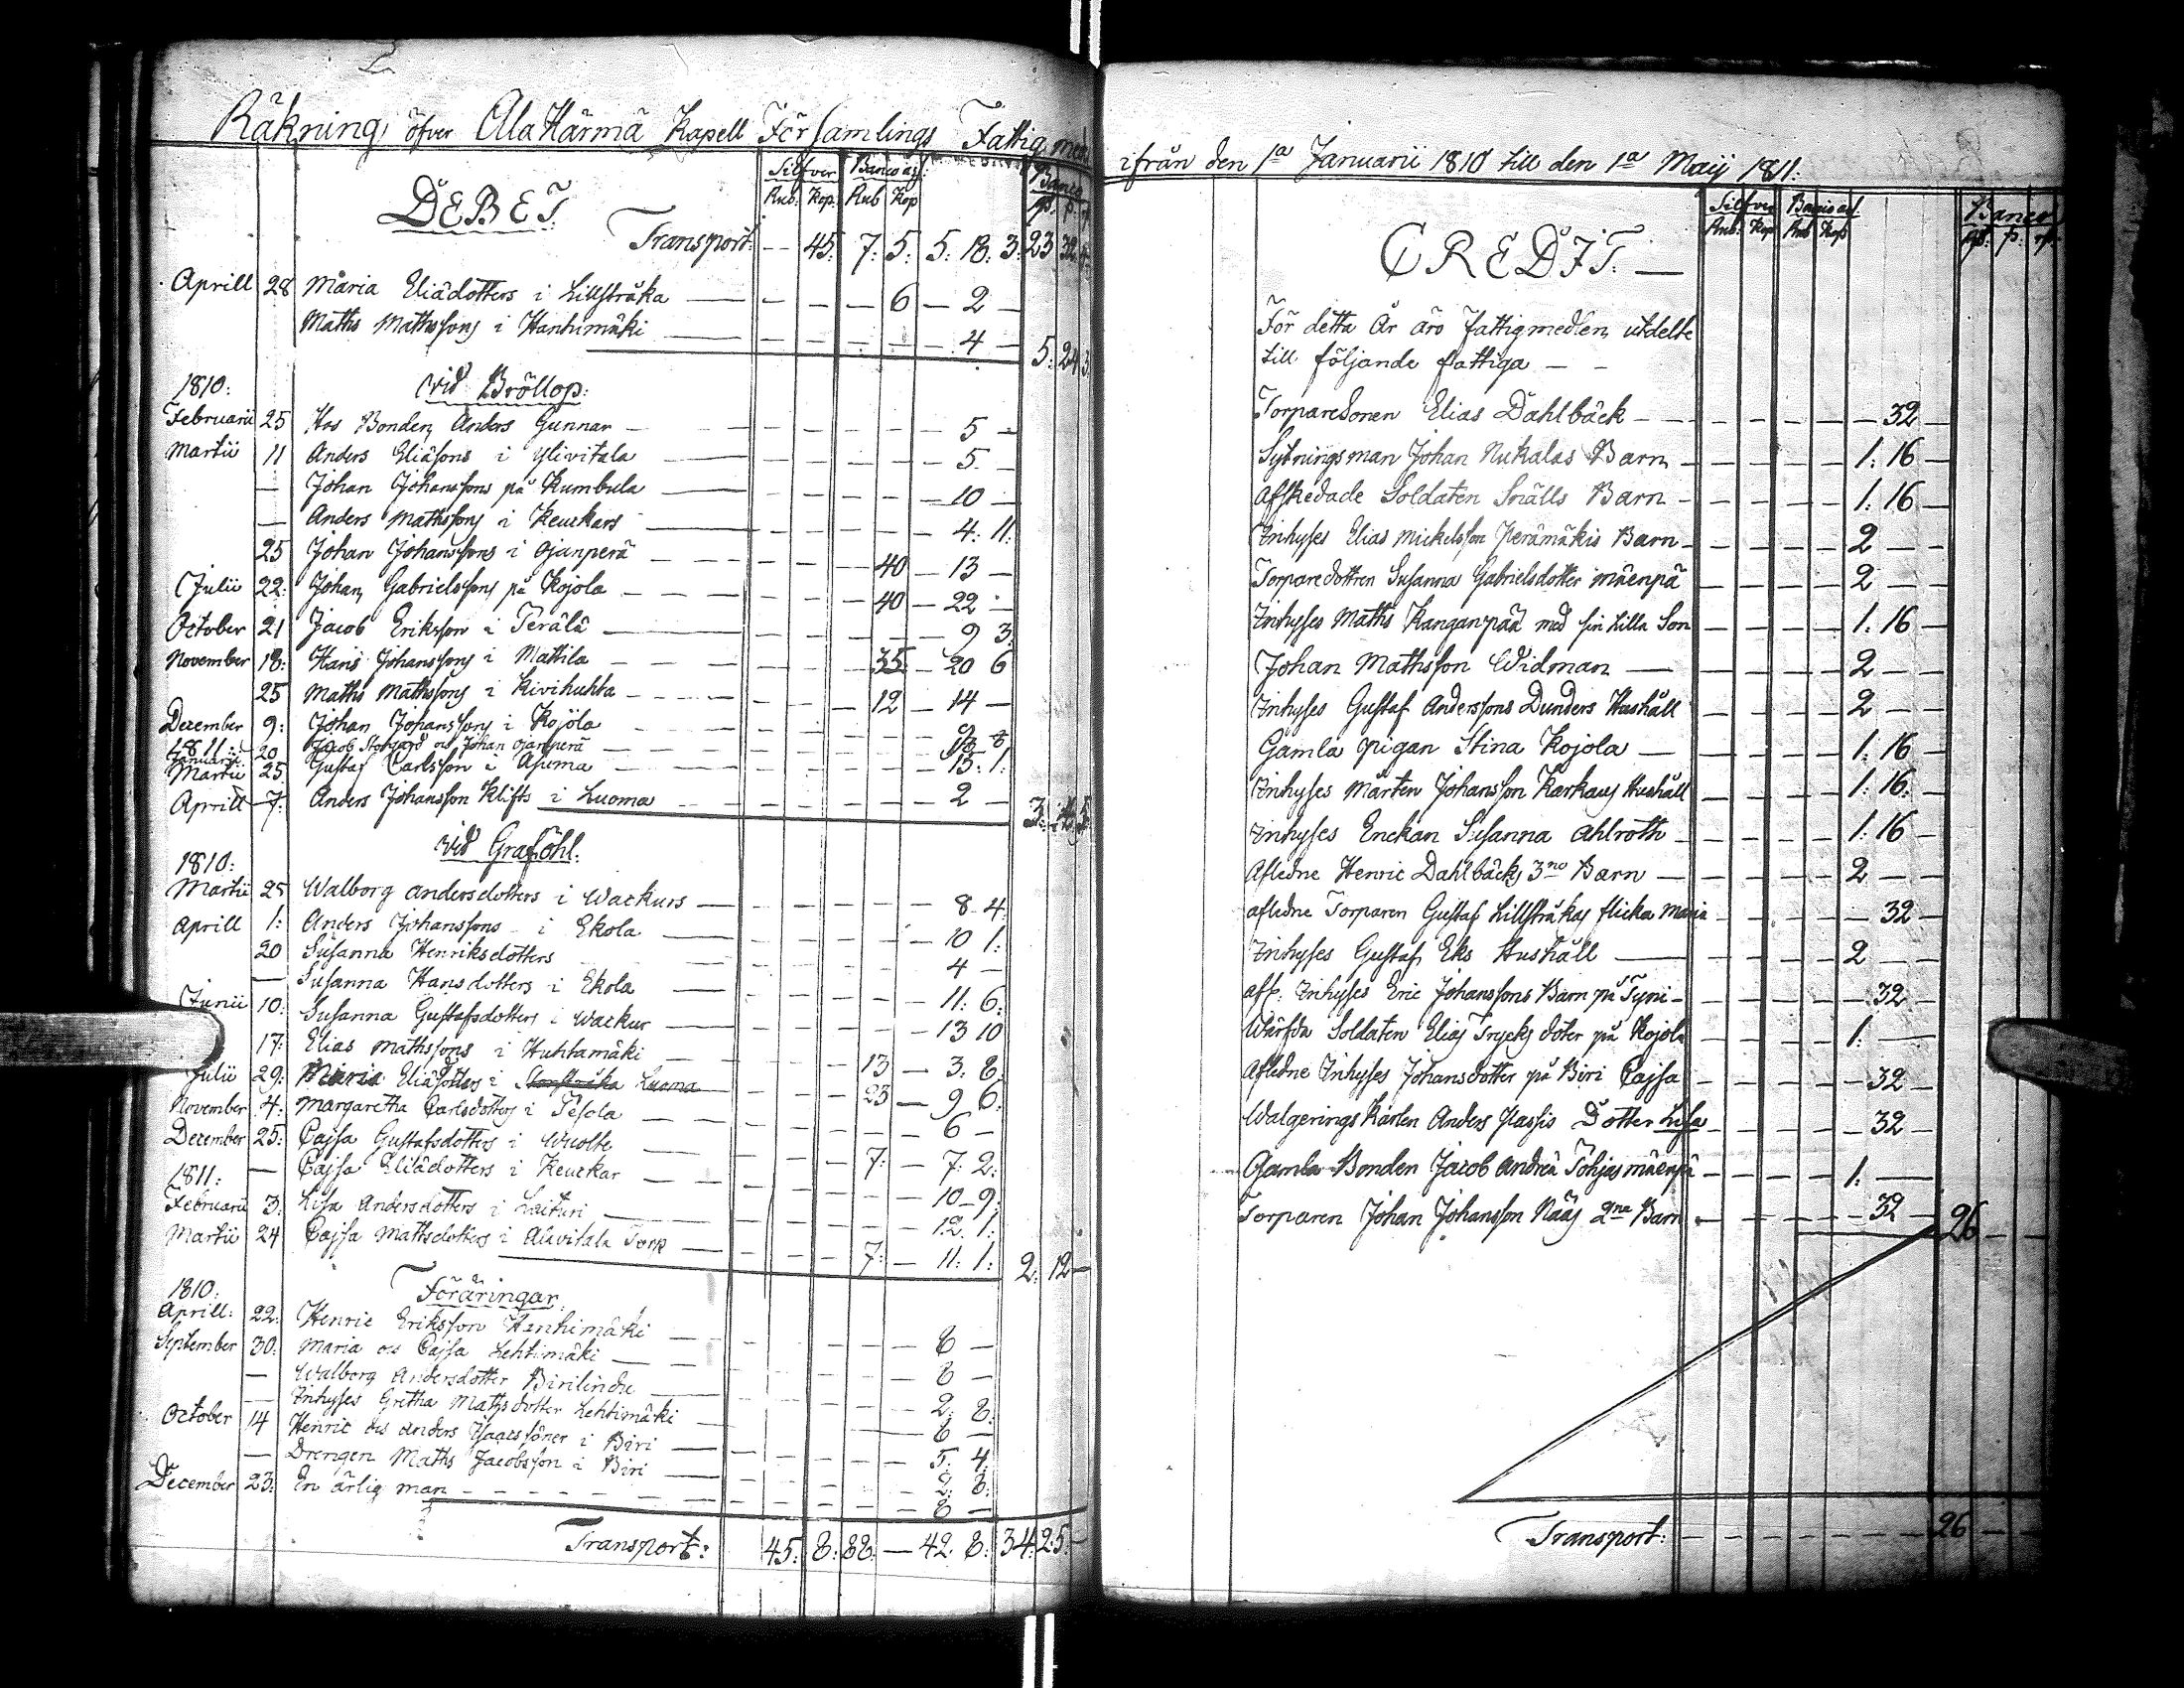 Räkning öfver Ala Härmä Kapell Församlings Fattig med
Silfver Banco as: Banco
Rub: Kop: Rub Kop
DEBET.
Transport: — 45: 7: 5: 5: 18: 3: 23 32
Aprill 28 Maria Eliædotters i Lillstråka — — — 6 — 2 —
Maths Mathssons i Hanhimäki — — — — — 4 — 5: 24 3
1810: vid Bröllop:
Februarii 25 Hos Bonden Anders Gunnar — — — — 5 —
Martii 11 Anders Eliæsons i Ylivitala — — — — 5. —
— Johan Johanssons på Kumbula — — — — 10 —
— Anders Mathssons i Keuckars — — — — 4: 11:
25 Johan Johanssons i Ojanperä — — — 40 — 13 —
Julii 22: Johan Gabrielssons på Kojola — — — 40 — 22 —
October 21 Jacob Eriksson i Perälä — — — — 9 3:
November 18: Hans Johanssons i Mattila — — — 35 — 20 6
25 Maths Mathssons i Kivihuhta — — — 12 — 14 —
December 9: Johan Johanssons i Kojola — — — —
1811: Januarii 20 Jacob Storgård och Johan Ojanperä — — — —
Martii 25 Gustaf Carlsson i Asuma — — — — 13: 1:
Aprill 7: Anders Johansson Klifts i Luoma — — — — 2 — 3:
vid Graföhl.
1810:
Martii 25 Walborg Andersdotters i Wackurs — — — — 8 4
Aprill 1: Anders Johanssons i Ekola — — — — 10 1:
20 Susanna Henriksdotters — — — — 4 —
— Susanna Hansdotters i Ekola — — — — 11: 6:
Junii 10: Susanna Gustafsdotters i Wackur — — — — 13 10
17: Elias Mathssons i Huhtamäki — — — 13 — 3. 8:
Julii 29: Maria Eliædotters i Storstråka Luoma — — — 23 — 9 6:
November 4: Margaretha Carlsdotters i Pesola — — — — 6 —
December 25: Cajsa Gustafsdotters i Wuolle — — — 7: — 7: 2:
— Cajsa Eliædotters i Keuckar — — — — 10 — 9:
1811:
Februarii 3: Lisa Andersdotters i Laituri — — — — 12. 1:
Martii 24 Cajsa Mattsdotters i Alavitala Torp — — — 7: — 11: 1: 2: 12 —
1810: Föräringar.
Aprill: 22: Henric Eriksson Hanhimäki — — — — 8 —
September 30: Maria och Cajsa Lehtimäki — — — — 8 —
— Walborg Andersdotter Birilindu — — — — 2: 8:
— Inhyses Gretha Mathsdotter Lehtimäki — — 8 —
October 14 Henric och Anders Isaacssöner i Biri — — — — 5. 4:
— Drengen Maths Jacobsson i Biri — — — — 2: 8:
December 23: En ärlig man — — — — 8 —
Transport: 45: 8: 88: — 42. 8: 34: 25: —
ifrån den 1a Januarii 1810 till den 1a Maij 1811:
Silfver Banco as Banco
Rub: Kop Rub Kop
CREDIT: —
För detta År äro Fattigmedlen utdelte
till följande fattiga — —
Torparesonen Elias Dahlbäck — — — — — 32 —
Sytningsman Johan Nukalas Barn — — — — 1: 16 —
Afskedade Soldaten Snälls Barn — — — — 1: 16 —
Inhyses Elias Mickelsson Perämäkis Barn — — — — 2 — —
Torparedottren Susanna Gabrielsdotter Mäenpä — — — — 2 — —
Inhyses Maths Kanganpää med sin lilla Son — — — — 1: 16 —
Johan Mathsson Widman — — — — 2 — —
Inhyses Gustaf Anderssons Dunders Hushåll — — — — 2 — —
Gamla pigan Stina Kojola — — — — 1: 16 —
Inhyses Mårten Johansson Karhaus Hushåll — — — — 1: 16: —
Inhyses Enckan Susanna Ahlroth — — — — 1: 16 —
Afledne Henric Dahlbäcks 3no Barn — — — — 2 — —
afledne Torparen Gustaf Lillstråkas flicka Maria — — — — 32 —
Inhyses Gustaf Eks Hushåll — — — — 2 — —
afl: Inhyses Eric Johanssons Barn på Tyni — — — — 32 —
Wärfda Soldaten Elias Trycks doter på Kojola — — — — 1: —
Afledne Inhyses Johansdotter på Biri Cajsa — — — — 32 —
Walgerings Karlen Anders Passis Dotter Lisa — — — — 32 —
Gamla Bonden Jacob Andreæ Pohjas mäenpä — — — — 1: —
Torparen Johan Johansson Nääs 2ne Barn — — — — 32 — 26 — —
Transport: — — — — — — 26 — —